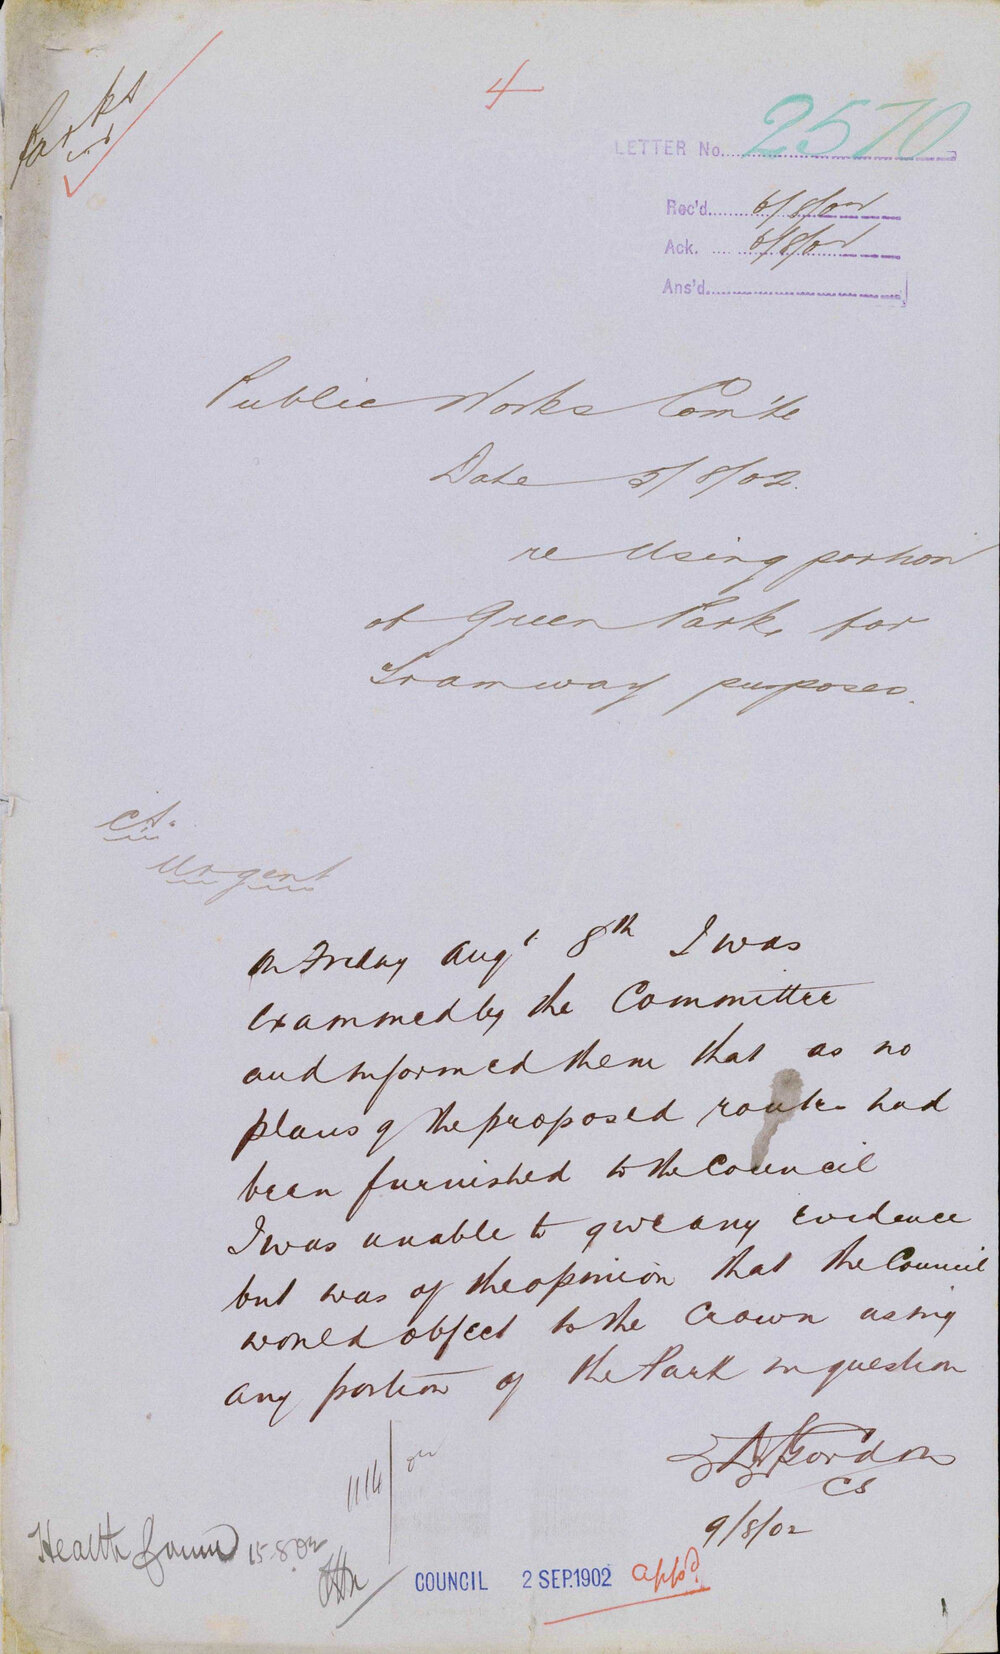 Parks
4
LETTER No. 2570
Rec'd. 6/8/02
Ack. 6/8/02
Ans'd.
Public Works Com'te
Date 5/8/02.
re Using portion
of Green Park, for
Tramway purposes.
Urgent
On Friday Augt 8th I was
examined by the Committee
and informed them that as no
plans of the proposed route had
been furnished to the Council
I was unable to give any evidence
but was of the opinion that the Council
would object to the Crown using
any portion of the Park in question
Gordon
CS
9/8/02
1114/02
Health 15.8.02
COUNCIL 2 SEP.1902 appd.